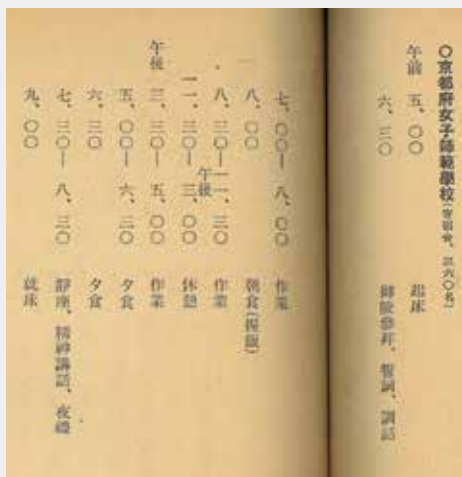 〇京都府女子師範學校(寄宿舍、計六〇名)
午前 五、〇〇 起床
六、三〇 御陵參拜、誓詞、訓話
七、〇〇― 八、〇〇 作業
八、〇〇 朝食(握飯)
八、三〇―一一、三〇 作業
一一、三〇―午後 三、〇〇 休憩
午後 三、三〇― 五、〇〇 作業
五、〇〇― 六、三〇 夕食
六、三〇 夕食
七、三〇― 八、三〇 靜座、精神講話、夜禮
九、〇〇 就床